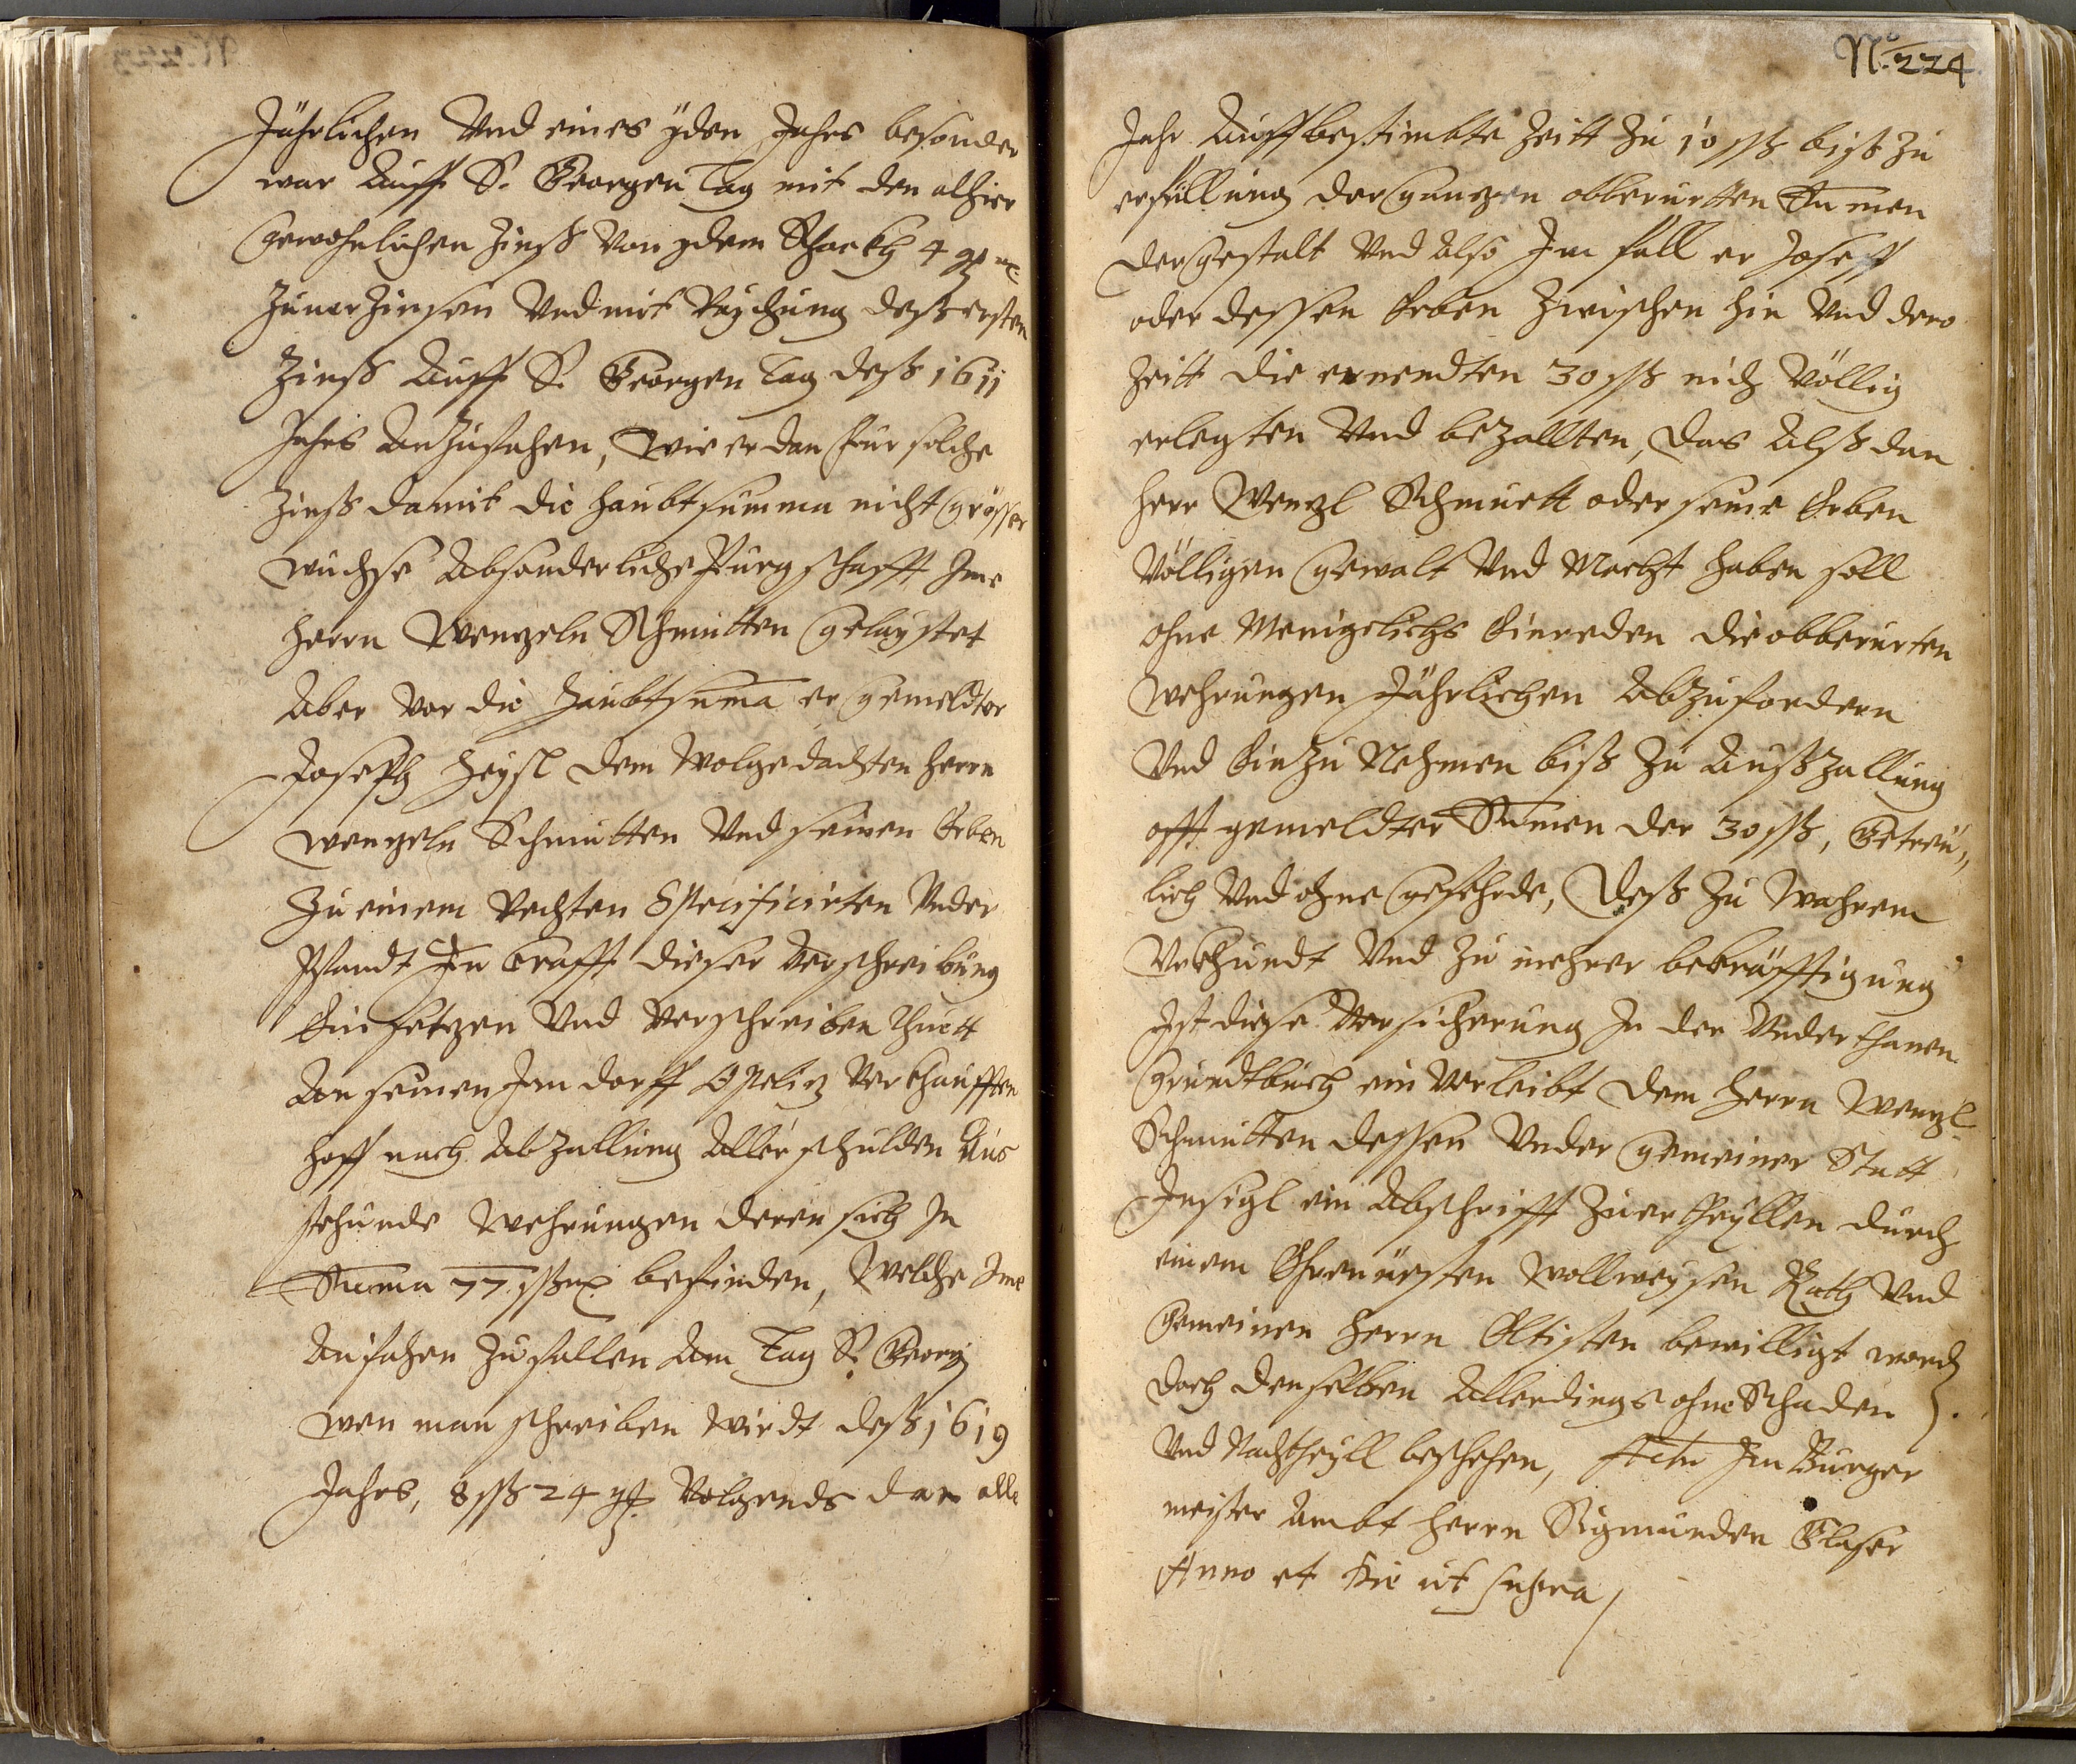 Jährlichen Vnd eines yden Jahrs besonder
war Auff S. Georgen Tag mit den alhier
gewohnlichen Zinß von ydem Schockh 4 g mz
Zuuerzinsen Vnd mit Raychung deß ersten
Zinß Auff S. Georgen Tag deß 1611
Jahrs Anzufahen, Wie er dan für solche
Zinß damit die haubtsumma nicht grösser
wuchse Absonderliche Purgschafft Ime
Herrn Wenzeln Schmutten gelaystet
Aber vor die Haubtsuma er gemeldter
Joseph Heysl dem Wolgedachten Herrn
Wenzeln Schmutten Vnd seinen Erben
Zu einem rechten Specificirten Vnder
Pfandt In Crafft dieser Verschreibung
Einsetzen Vnd Verschreiben Thuett
An seinen Im dorff Opeliz Verkhaufften
Hoff nach Abzallung Aller schulden Aus
stehunde Wehrungen deren sich In
Suma 77 ßß mz befinden, Welche Ime
Anfahen Zu fallen Am Tag S. Georgj
wen man schreiben Wirdt deß 1619
Jahrs, 8 ßß 24 g. Volgends dan alle
No. 224
Jahr Auff bestimbte Zeitt Zu 10 ßß biß Zu
erfüllung der ganzen obberurtten Sumen
Der gestalt Vnd Also Im fall er Joseff
oder dessen Erben Zwischen hin Vnd dero
Zeitt die ernendten 30 ßß nich Völlig
erlegten Vnd bezallten, Das Alß dan
Herr Wenzl Schmuett oder seine Erben
Völligen gewalt Vnd Macht haben soll
ohne Menigclichs Einreden die obberurten
Wehrungen Jährlichen Abzufordern
Vnd Einzu Nehmen biß Zu Außzallung
offt gemeldter Sumen der 30 ßß, Getreu,,
lich Vnd ohne gefehrde, Deß Zu Wahrem
Vrkhundt Vnd Zu mehrer bekräfftigung
Ist diese Versicherung In der Vnderthanen
Grundtbuch ein Verleibt Dem Herrn Wenzl
Schmutten dessen Vnder gemeiner Statt
Insigl ein Abschrifft Zuertheyllen durch
einem Ehrnuesten Wollweysen Rath Vnd
Gemeinen Herrn Eltisten bewilligt word
Doch denselben Allerdings ohne Schaden
Vnd Nachtheyll beschehen, Actu Im Burger
meister Ambt Herrn Sigmunden Glaser
Anno et die ut supra